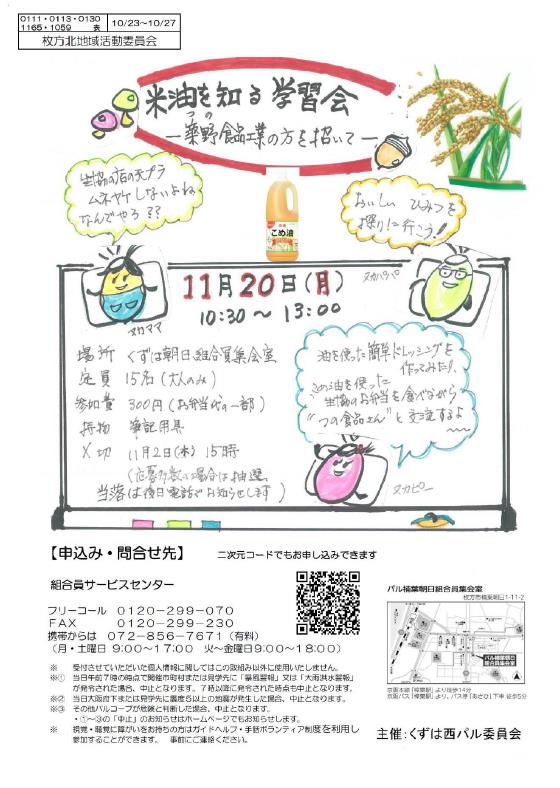 0111・0113・0130
1165・1059 表
10/23~10/27
枚方北地域活動委員会
米油を知る学習会
つの
―築野食品工業の方を招いて―
生協の店の天プラ
ムネヤケしないよね
なんでやろ??
おいしい ひみつを
探りに行こう!
こめ油
ヌカママ
ヌカパパ
11月20日(月)
10:30~13:00
場所 くずは朝日組合員集会室
定員 15名(大人のみ)
参加費 300円(お弁当代の一部)
持物 筆記用具
〆切 11月2日(木)15時
(応募多数の場合は抽選
当落は後日電話でお知らせします)
油を使った簡単ドレッシングを
作ってみたり、
こめ油を使った
生協のお弁当を食べながら
"つの食品さん"と交流するよ
ヌカピー
【申込み・問合せ先】
二次元コードでもお申し込みできます
組合員サービスセンター
フリーコール 0120-299-070
FAX 0120-299-230
携帯からは 072-856-7671(有料)
(月・土曜日 9:00~17:00 火~金曜日9:00~18:00)
パル楠葉朝日組合員集会室
枚方市楠葉朝日1-11-2
パル楠葉朝日
組合員集会室
京阪本線「樟葉駅」より徒歩14分
京阪バス「樟葉駅」より、バス停「あさひ」下車 徒歩5分
※ 受付させていただいた個人情報に関してはこの取組み以外に使用いたしません。
※① 当日午前7時の時点で開催市町村または見学先に「暴風警報」又は「大雨洪水警報」
が発令された場合、中止となります。7時以降に発令された時点も中止となります。
※② 当日大阪府下または見学先に震度5以上の地震が発生した場合、中止となります。
※③ その他パルコープが危険と判断した場合、中止となります。
・①~③の「中止」のお知らせはホームページでもお知らせします。
※ 視覚・聴覚に障がいをお持ちの方はガイドヘルプ・手話ボランティア制度を利用し
参加することができます。 事前にご連絡ください。
主催:くずは西パル委員会